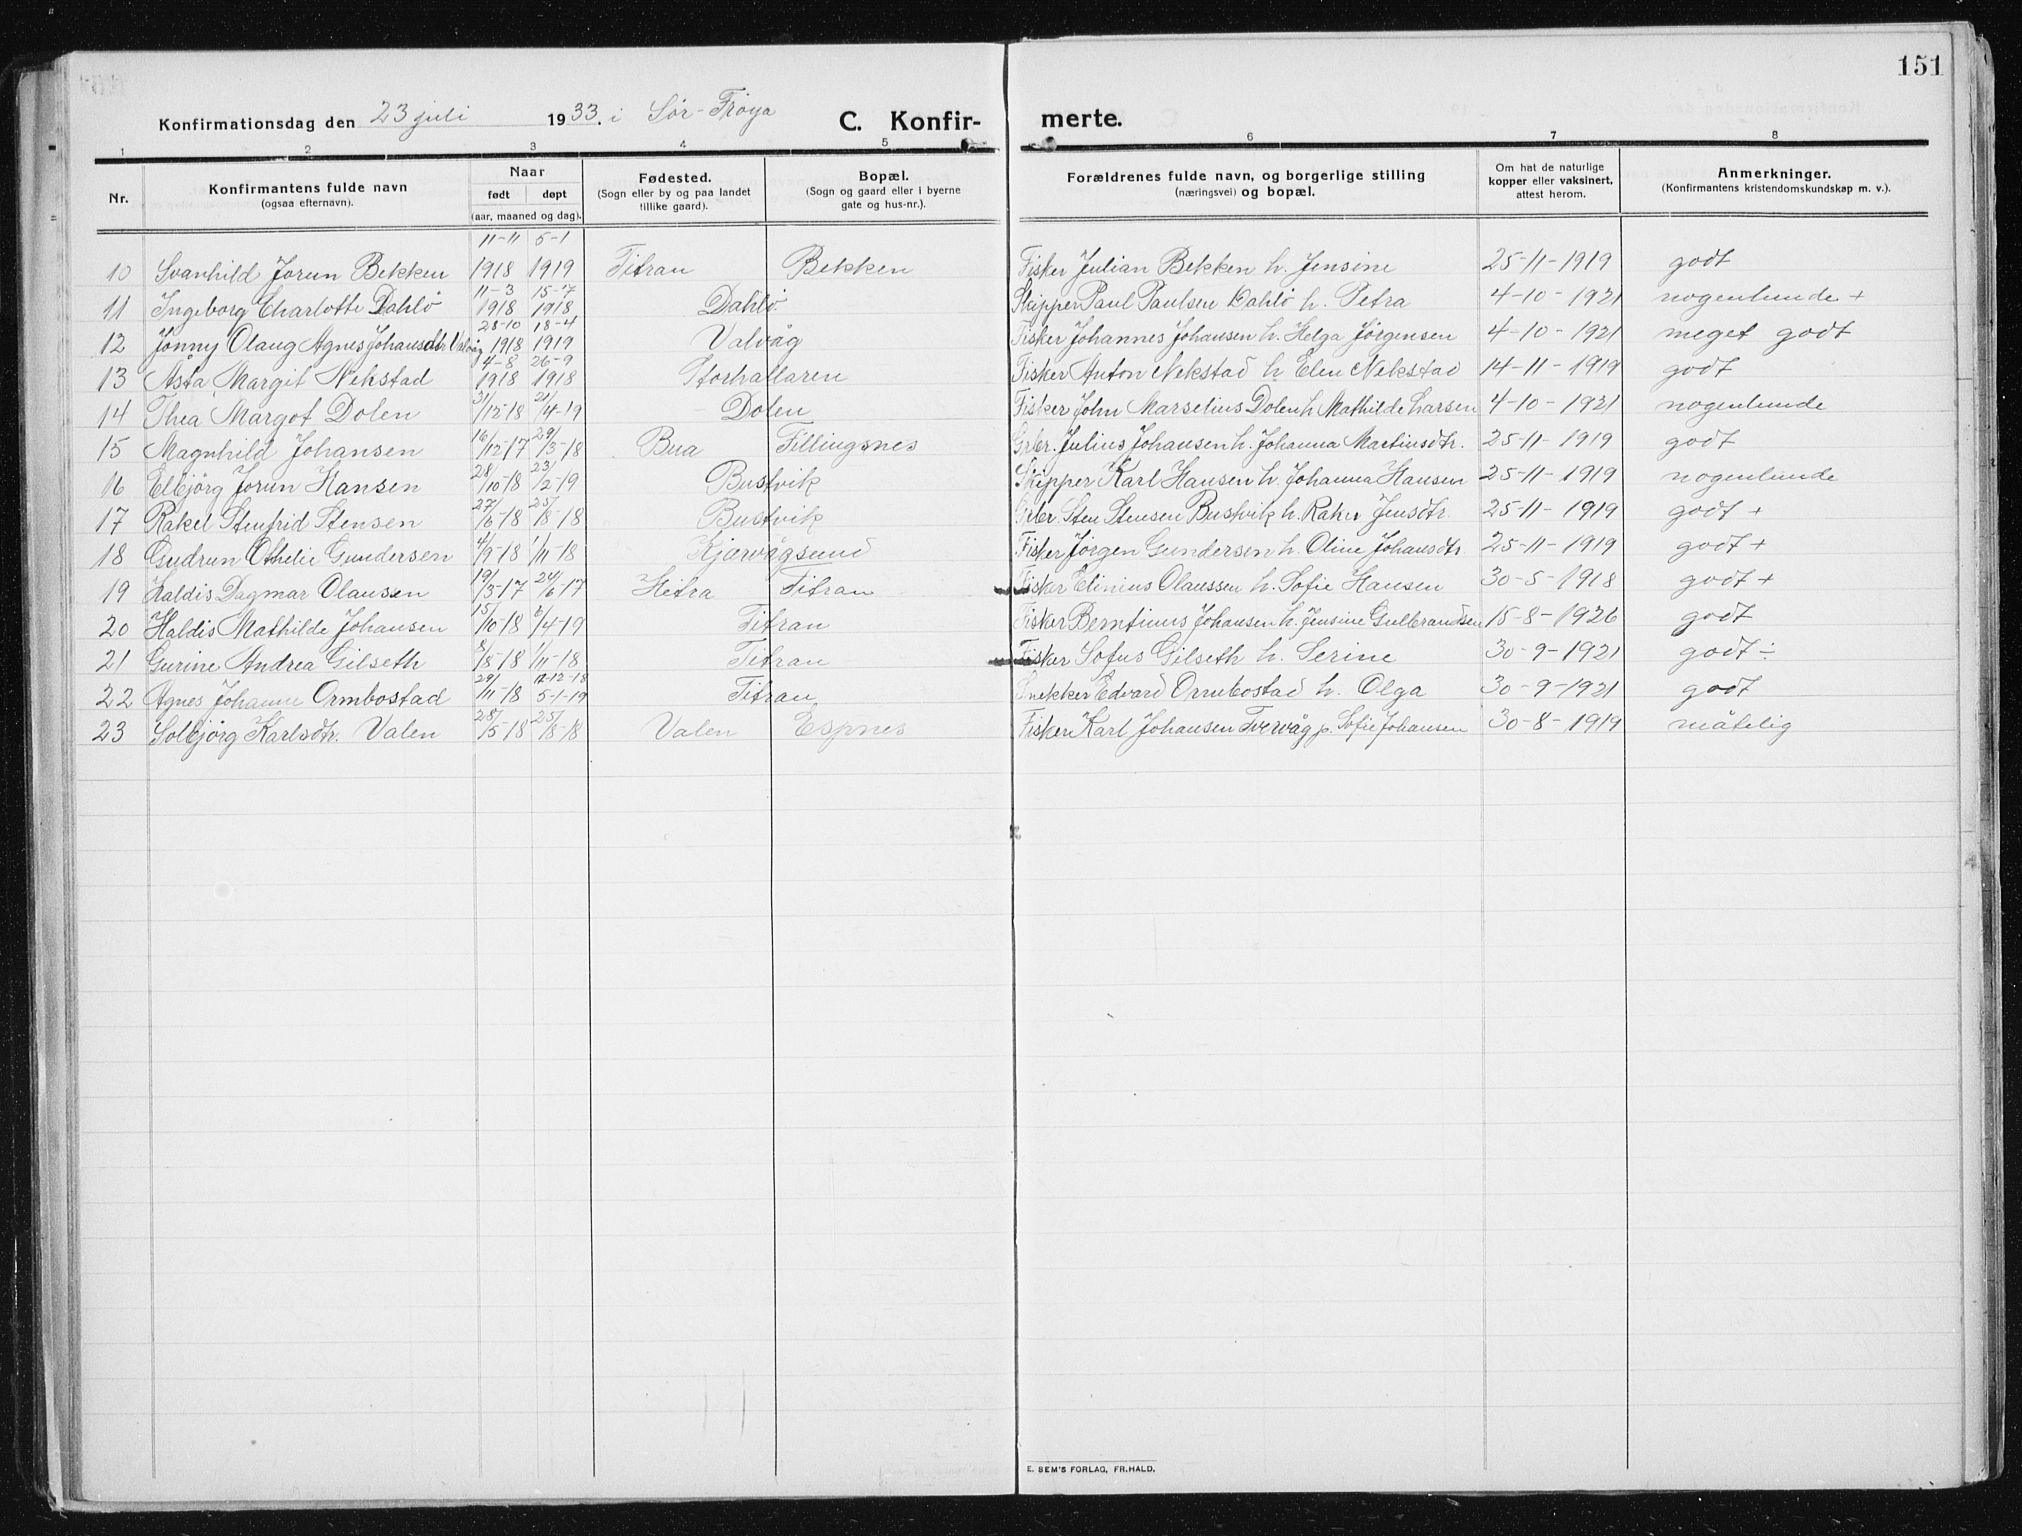 151
Konfirmationsdag den 23 juli 1933. i Sør-Frøya C. Konfirmerte.
1 2 3 4 5 6 7 8
Nr. Konfirmantens fulde navn (ogsaa efternavn). Naar født døpt (aar, maaned og dag). Fødested. (Sogn eller by og paa landet tillike gaard). Bopæl. (Sogn og gaard eller i byerne gate og hus-nr.). Forældrenes fulde navn, og borgerlige stilling (næringsvei) og bopæl. Om hat de naturlige kopper eller vaksinert, attest herom. Anmerkninger. (Konfirmantens kristendomskundskap m. v.).
10 Svanhild Jorun Bekken 11-11 1918 5-1 1919 Titran Bekken Fisker Julian Bekken h. Jensine 25-11-1919 godt
11 Ingeborg Charlotte Dahlø 11-3 1918 15-7 1918 Dahlø Skipper Paul Paulsen Dahlø h. Petra 4-10-1921 nogenlunde +
12 Jonny Olaug Agnes Johansdtr Valvåg 28-10 1918 18-4 1919 Valvåg Fisker Johannes Johansen h. Helga Jørgensen 4-10-1921 meget godt
13 Asta Margit Nekstad 4-8 1918 26-9 1918 Storhallaren Fisker Anton Nekstad h Elen Nekstad 14-11-1919 godt
14 Thea Margot Dolen 31/12-18 21/4-19 - Dolen Fisker John Marselius Dolen h Mathilde Larsen 4-10-1921 nogenlunde
15 Magnhild Johansen 16/12-17 29/3-18 Bua Fillingsnes Grbr. Julius Johansen h. Johanna Martinsdtr. 25-11-1919 godt
16 Elbjörg Jorun Hansen 28/10-18 23/2-19 Bustvik Skipper Karl Hansen h. Johanna Hansen 25-11-1919 nogenlunde
17 Rakel Stenfrid Stensen 27/6-18 25/8-18 Bustvik Grbr. Sten Stensen Bustvik h. Rakel Jensdtr. 25-11-1919 godt +
18 Gudrun Othelie Gundersen 4/9-18 1/11-18 Kjærvågsund Fisker Jørgen Gundersen h. Oline Johansdtr 25-11-1919 godt +
19 Haldis Dagmar Olausen 19/3-17 24/6-17 Hitra Titran Fisker Elinius Olaussen h. Sofie Hansen 30-5-1918 godt +
20 Haldis Mathilde Johansen 15/10-18 6/4-19 Titran Fisker Berntinus Johansen h. Jensine Gulbrandsen 15-8-1926 godt
21 Gurine Andrea Gilseth 8/8-18 1/11-18 Titran Fisker Sofus Gilseth h. Serine 30-9-1921 godt ÷
22 Agnes Johanne Ormbostad 29/11-18 12-12-18 5-1-19 Titran Snekker Edvard Ormbostad h. Olga 30-9-1921 godt
23 Solbjörg Karlsdtr. Valen 28/5-18 25/8-18 Valen Espnes Fisker Karl Johansen Tvervåg p. Sofie Johansen 30-8-1919 måtelig
E. SEM'S FORLAG, FR.HALD.